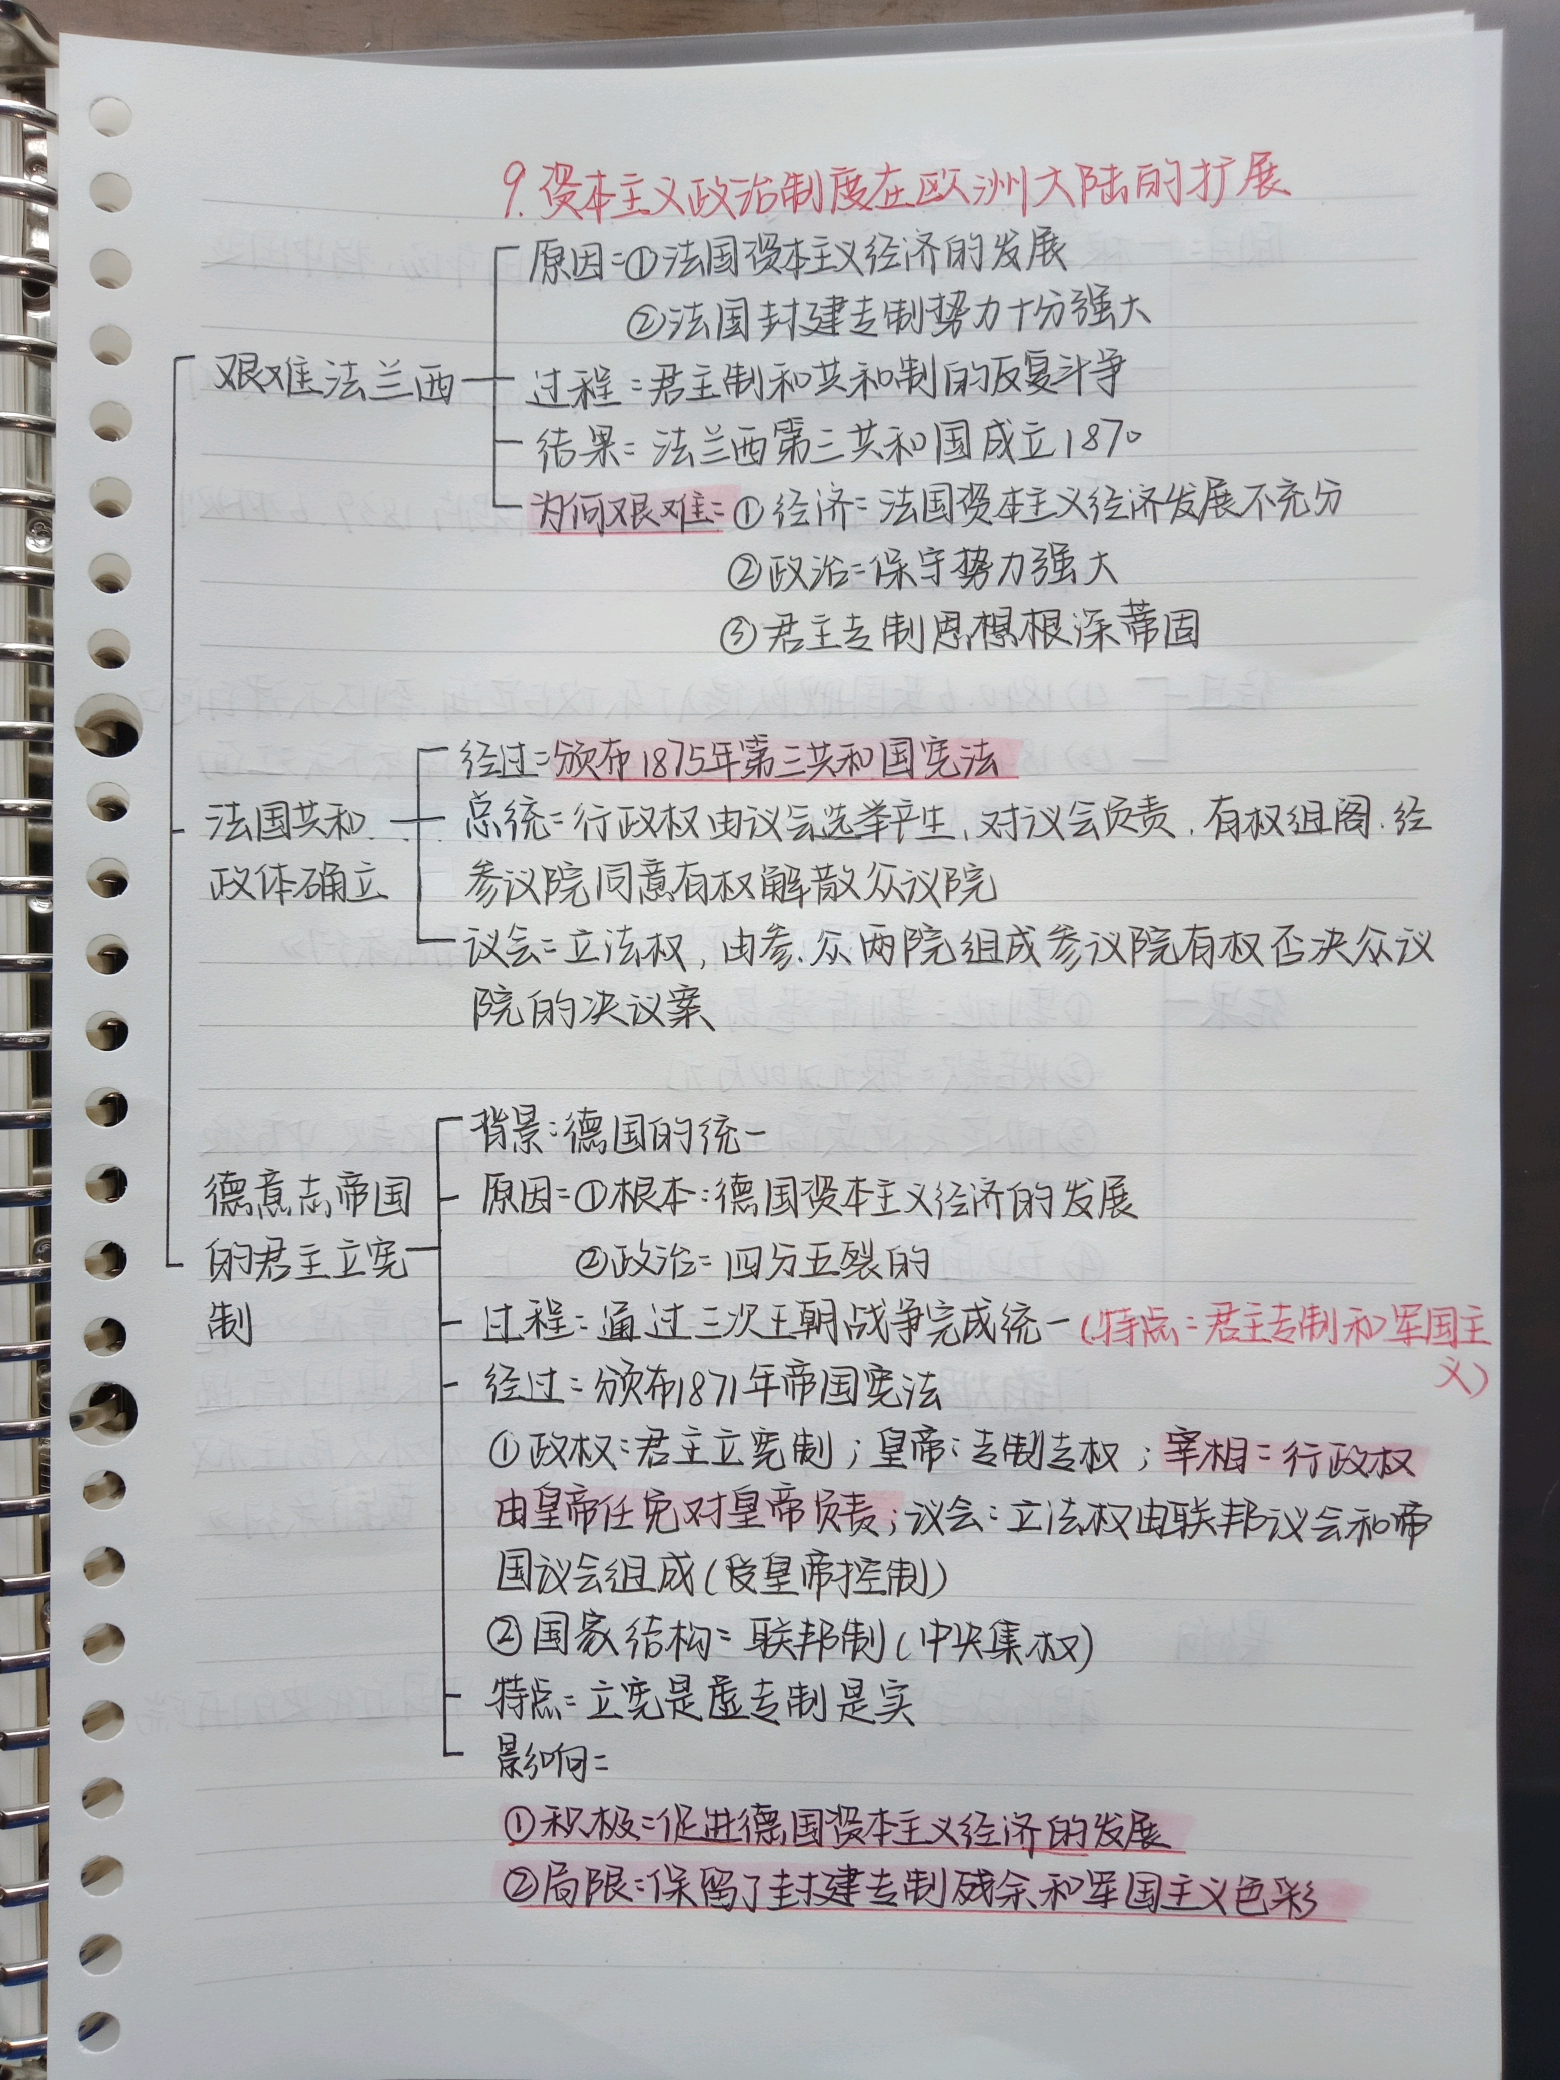 9.资本主义政治制度在欧洲大陆的扩展
原因=①法国资本主义经济的发展
②法国封建专制势力十分强大
艰难法兰西
过程=君主制和共和制的反复斗争
结果=法兰西第三共和国成立1870
为何艰难=①经济=法国资本主义经济发展不充分
②政治=保守势力强大
③君主专制思想根深蒂固
经过=颁布1875年第三共和国宪法
法国共和
总统=行政权由议会选举产生、对议会负责、有权组阁、经
政体确立
参议院同意有权解散众议院
议会=立法权,由参、众两院组成参议院有权否决众议
院的决议案
背景:德国的统一
德意志帝国
原因=①根本:德国资本主义经济的发展
的君主立宪
②政治=四分五裂的
制
过程=通过三次王朝战争完成统一(特点=君主专制和军国主
义)
经过=颁布1871年帝国宪法
①政权:君主立宪制;皇帝:专制专权;宰相=行政权
由皇帝任免对皇帝负责;议会:立法权由联邦议会和帝
国议会组成(受皇帝控制)
②国家结构=联邦制(中央集权)
特点=立宪是虚专制是实
影响=
①积极=促进德国资本主义经济的发展
②局限=保留了封建专制残余和军国主义色彩